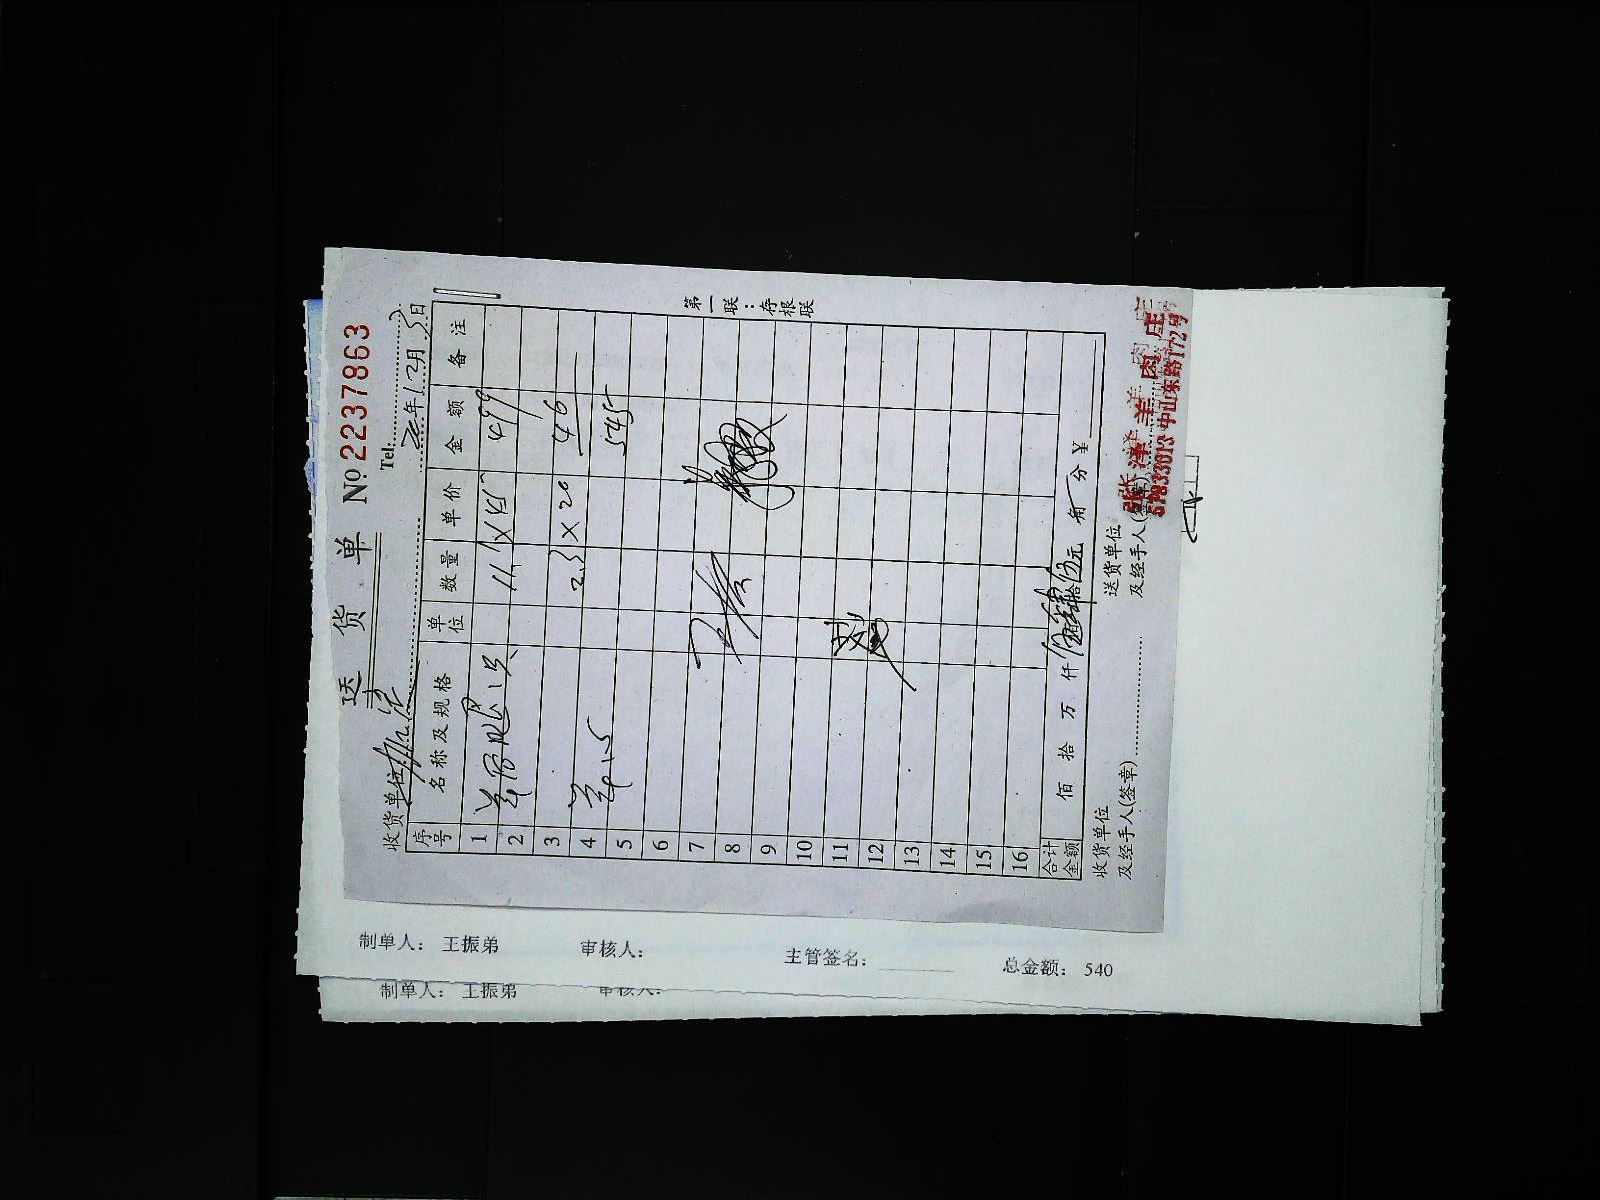 送货单 № 2237863
Tel:
收货单位
20年12月3日
序号 名称及规格 单位 数量 单价 金额 备注
1
2 11.1 × 45 499
3
4 2.3 × 20 46
5 545
6
7
8
9
10
11
12
13
14
15
16
合计金额 佰 拾 万 仟 伍佰肆拾伍元 角 分 ¥
第一联:存根联
收货单位及经手人(签章)
送货单位及经手人(签章)
羊肉庄
中山东路172号
制单人: 王振弟 审核人: 主管签名: 总金额: 540
制单人: 王振弟 审核人: